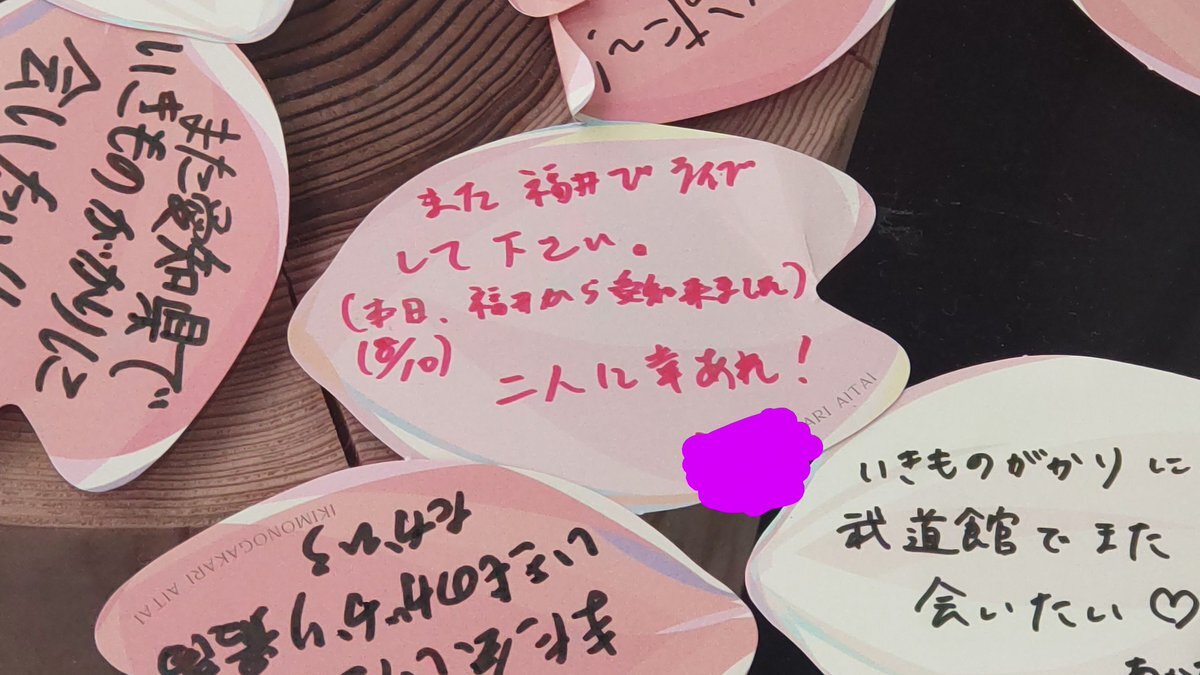 また愛知県で
いきものがかりに
会いたい
また福井でライブ
して下さい。
(本日、福井から愛知来ました)
(8/10)
二人に幸あれ!
ARI AITAI
IKIMONOGAKARI AITAI
また会いた
いきものがかり
だから
いきものがかりに
武道館でまた
会いたい♡